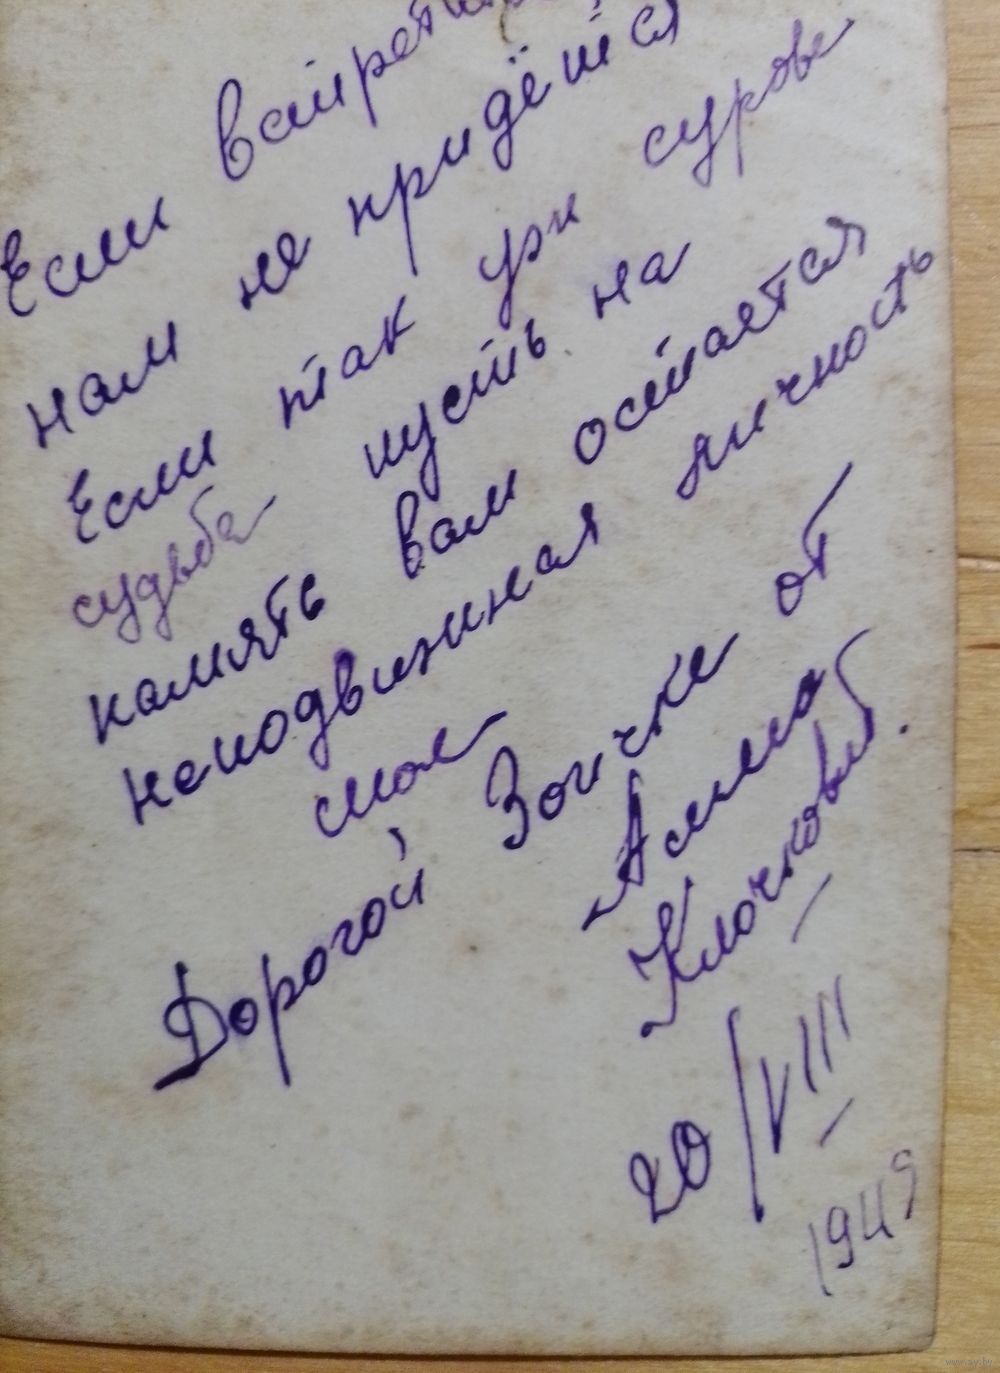 Если встрет
нам не придётся
Если так уж сурова
судьба пусть на
память вам остается
неподвижная личность
моя
Дорогой Зоичке от
Клочковой.
20/VIII
1949
www.ay.by